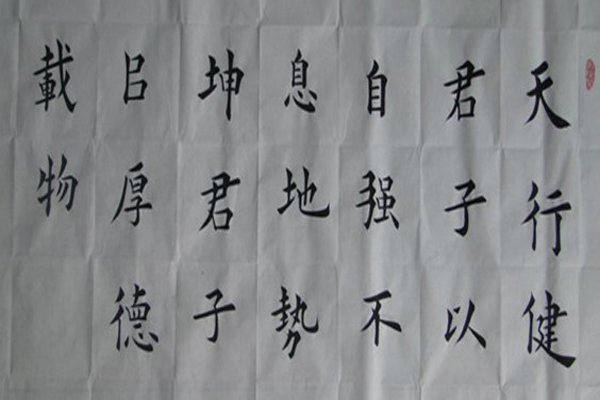 天行健
君子以
自强不
息地勢
坤君子
㠯厚德
載物